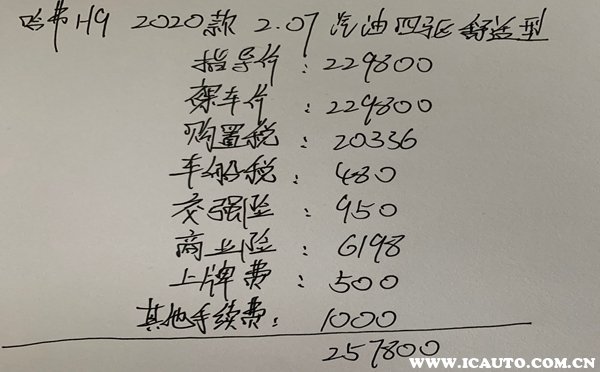 哈弗H9 2020款 2.0T 汽油四驱舒适型
指导价：229800
裸车价：229800
购置税：20336
车船税：480
交强险：950
商业险：6198
上牌费：500
其他手续费：1000
257800
WWW.ICAUTO.COM.CN